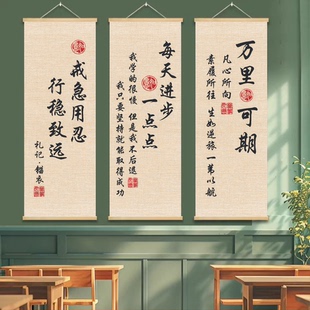 戒急用忍
行稳致远
礼记·缁衣
每天进步
一点点
我学的很慢 但是我不后退
我只要坚持就能取得成功
万里可期
凡心所向
素履所往 生如逆旅 一苇以航